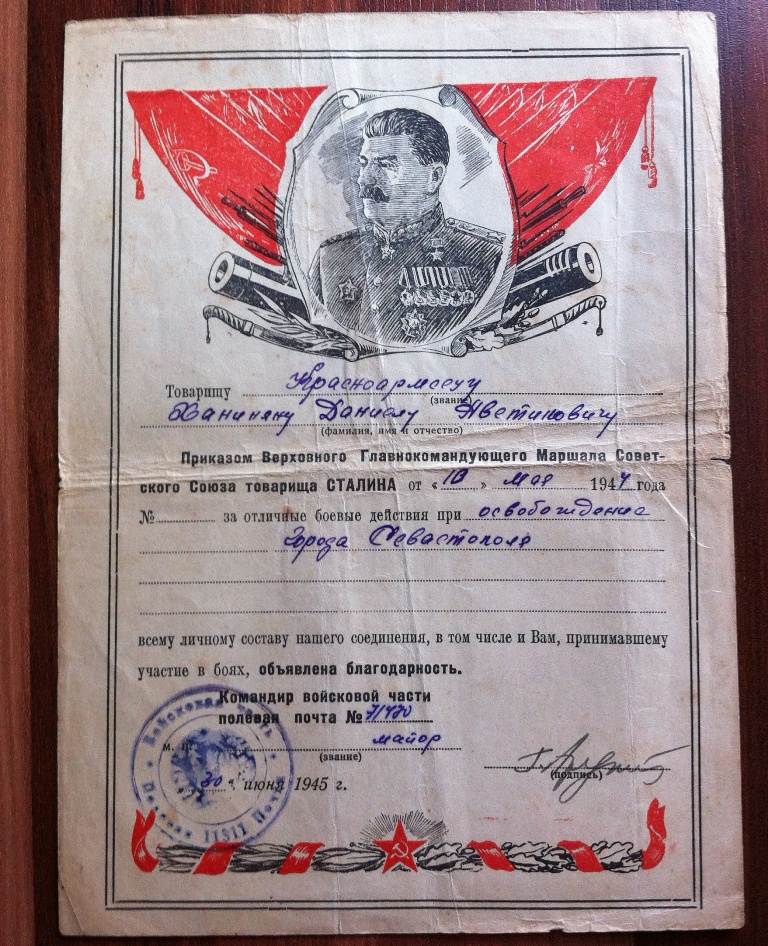 Товарищу Красноармейцу
(звание)
Даниелу Аветиковичу
(фамилия, имя и отчество)
Приказом Верховного Главнокомандующего Маршала Совет-
ского Союза товарища СТАЛИНА от «10» мая 1944 года
№ за отличные боевые действия при освобождение
города Севастополя
всему личному составу нашего соединения, в том числе и Вам, принимавшему
участие в боях, объявлена благодарность.
Командир войсковой части
полевая почта №
майор
м. п.
(звание)
(подпись)
30 " июня 1945 г.
Войсковая часть